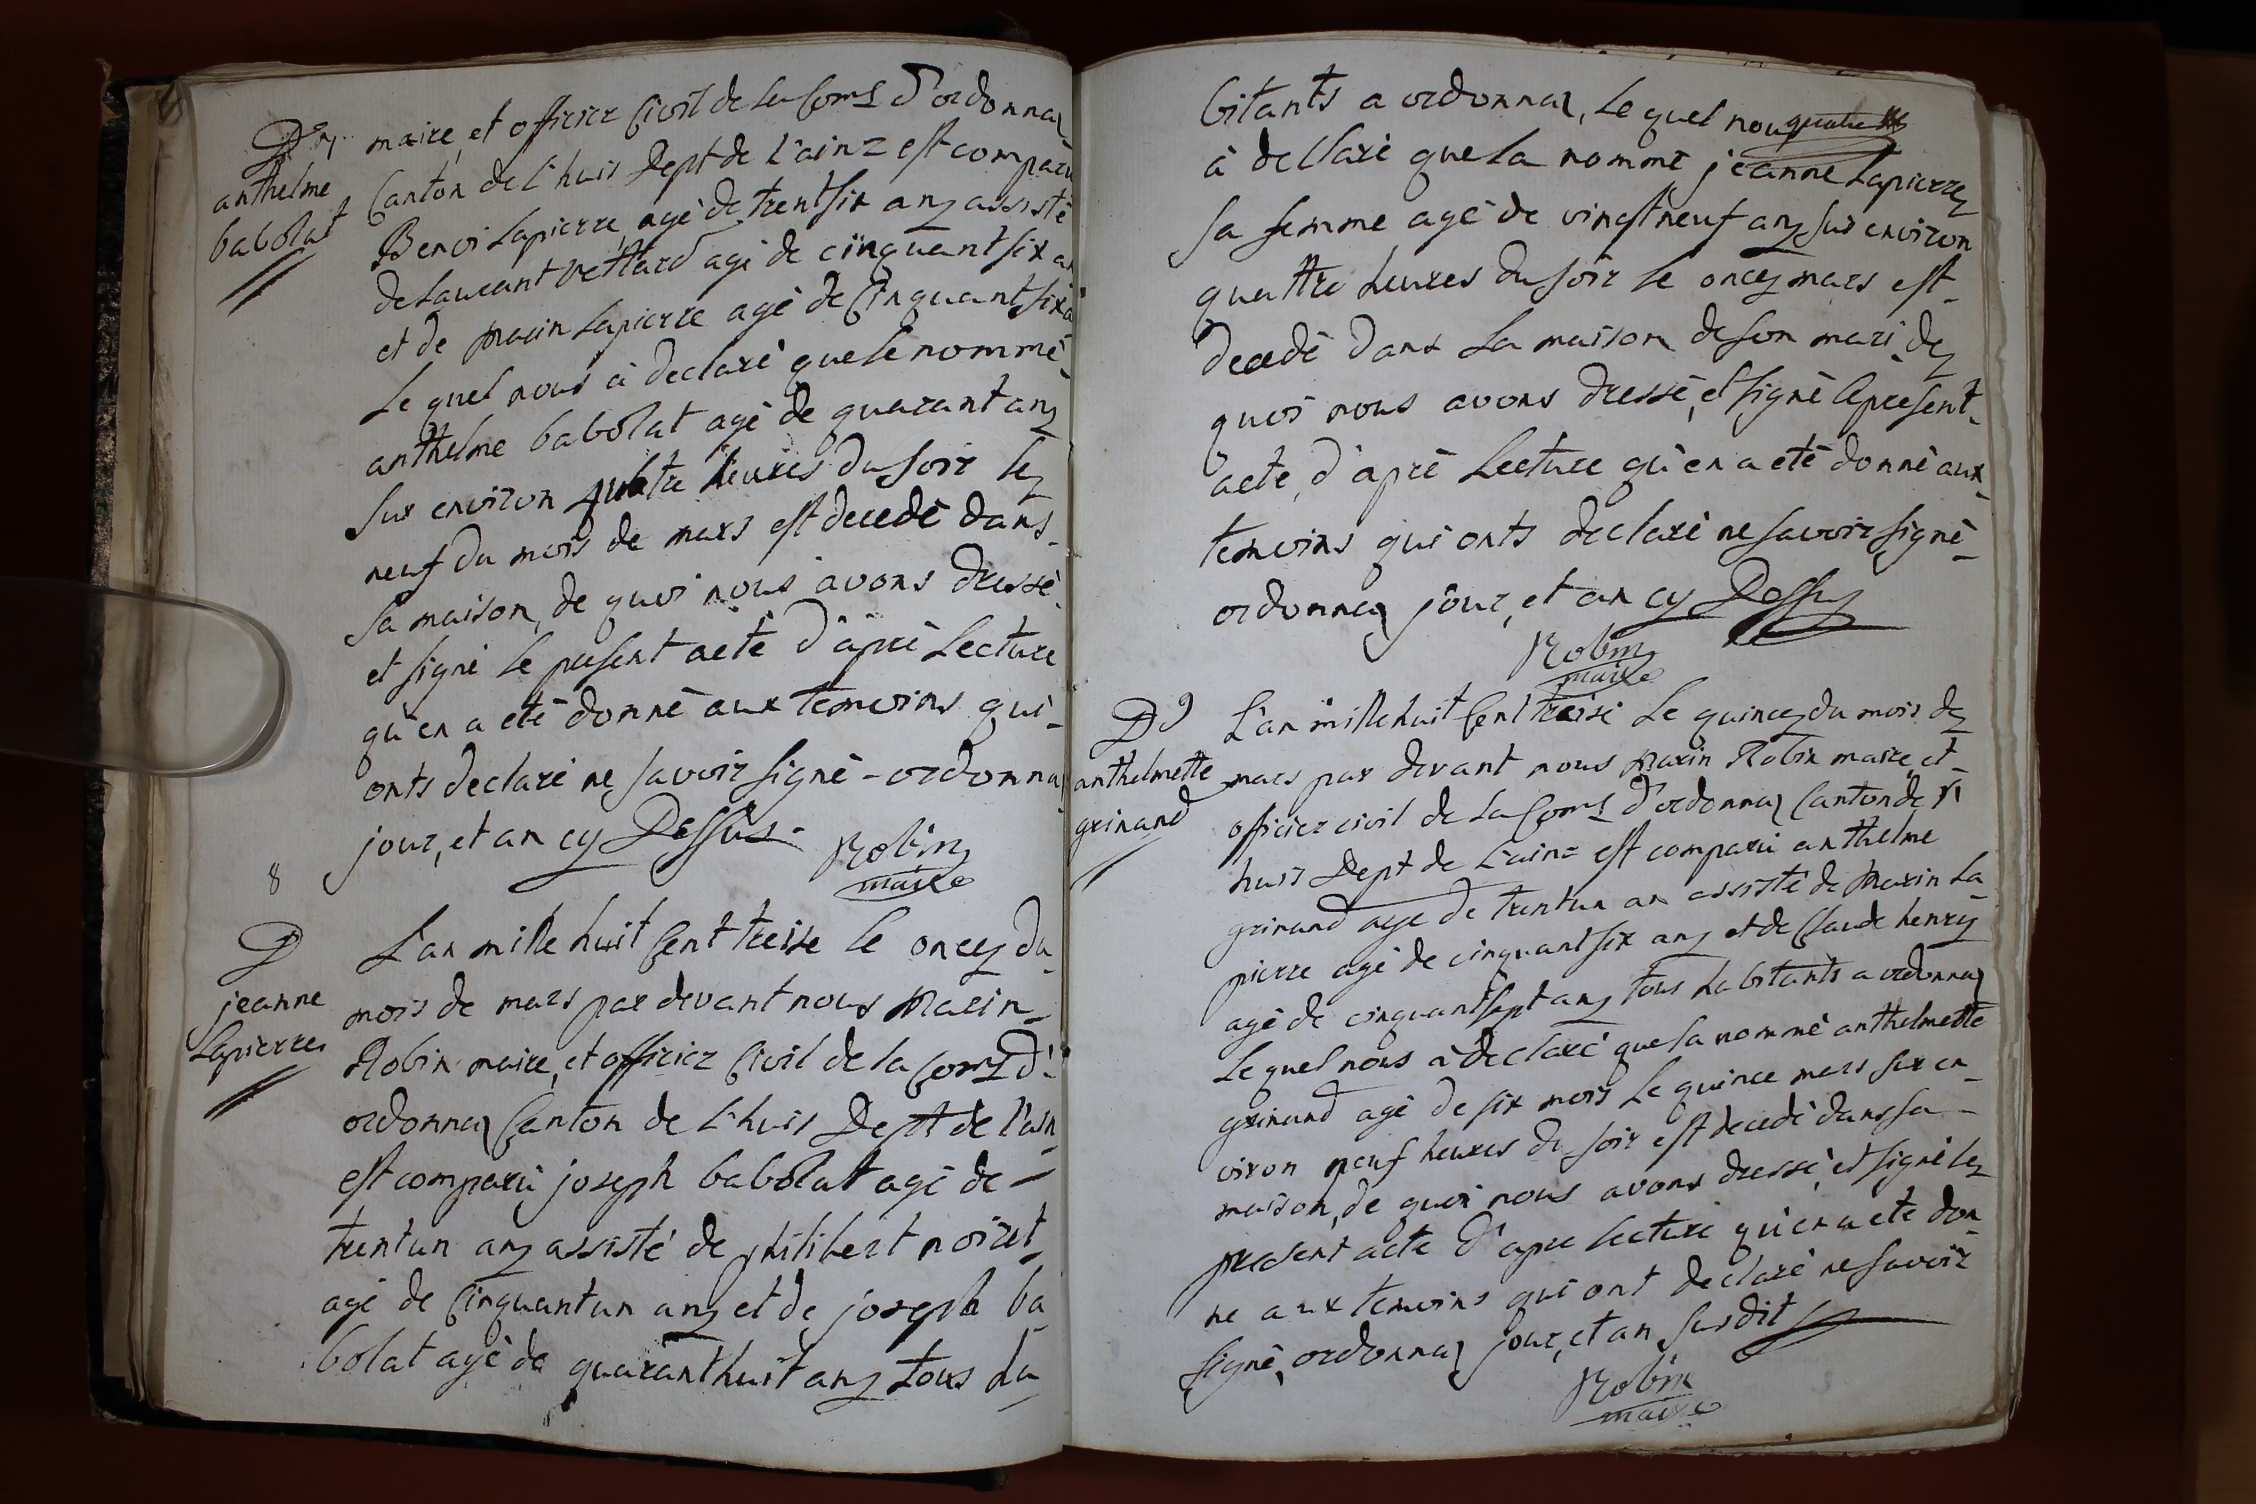 D
anthelme
babolat
maire, et officier Civil de la Com.e d'ordonnaz
Canton de l'huis Dept de L'ainz est comparu
Benoi Lapierre agé de trentsix anz assisté
de Laurant vettard agé de cinquant six an
et de marin Lapierre agé de Cinquant six a
Le quel nous à declaré que le nommé
anthelme babolat agé de quarant anz
sur environ quatre heures du soir le
neuf du mois de mars est decedé dans
sa maison, de quoi nous avons dressé
et signé le present acte d'apré Lecture
qu'en a eté donné aux temoins qui
onts declaré ne savoir signé - ordonnaz
jour, et an cy Dessus
Robin
maire
8
D
jeanne
Lapierre
L'an mille huit Cent treise le oncez du
mois de mars par devant nous Marin
Robin maire, et officier Civil de la Com.e d'
ordonnaz Canton de L'huis Dept de l'ain
est comparu joseph babolat agé de
trentun anz assisté de philibert noiret
agé de Cinquantun anz et de joseph ba
bolat agé de quaranthuit anz tous ha
bitants a ordonnaz, Le quel nous
à dellaré que la nommé jeanne Lapierre
sa femme agé de vingtneuf anz sur environ
quattre heures du soir le oncez mars est
decedé dans La maison de son mari de
quoi nous avons dressé, et signé le present
acte, d'apré Lecture qu'en a eté donné aux
temoins qui onts declaré ne savoir signé
ordonnaz jour, et an cy Dessus
Robin
maire
D 9
anthelmette
grinand
L'an mille huit Cent treise Le quincez du mois de
mars par devant nous Marin Robin maire, et
officier civil de la Com.e d'ordonnaz Canton de l'
huis Dept de L'ainz est comparu anthelme
grinand age de trentun an assisté de Marin La
pierre agé de cinquant six anz et de Claude henry
agé de cinquantsept anz tous habitants a ordonnaz
Le quel nous à declaré que la nommé anthelmette
grinand agé de six mois Le quince mars sur en
viron neuf heures du soir est decedé dans sa
maison, de quoi nous avons dressé, et signé le
present acte d'apre lecture qu'en a ete don
ne aux temoins qui ont declaré ne savoir
signé, ordonnaz jour, et an, susdit
Robin
maire